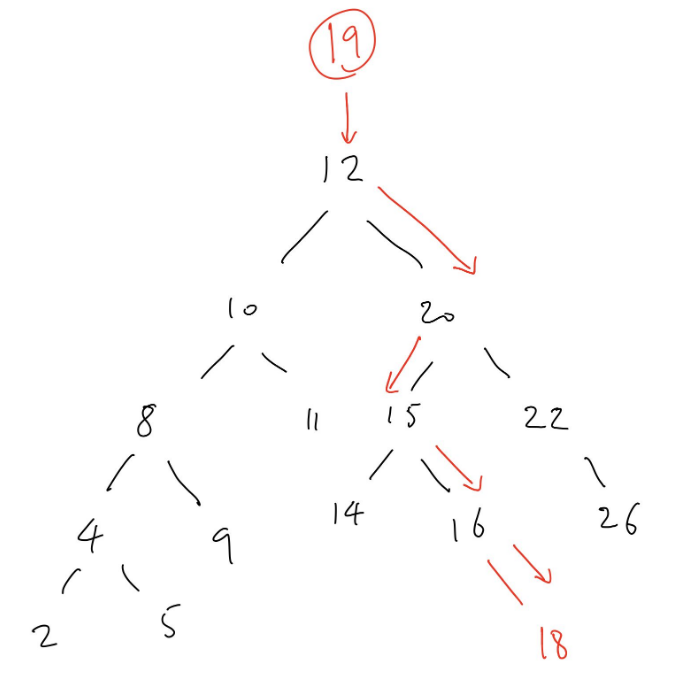 19
12
10 20
8 11 15 22
4 9 14 16 26
2 5 18